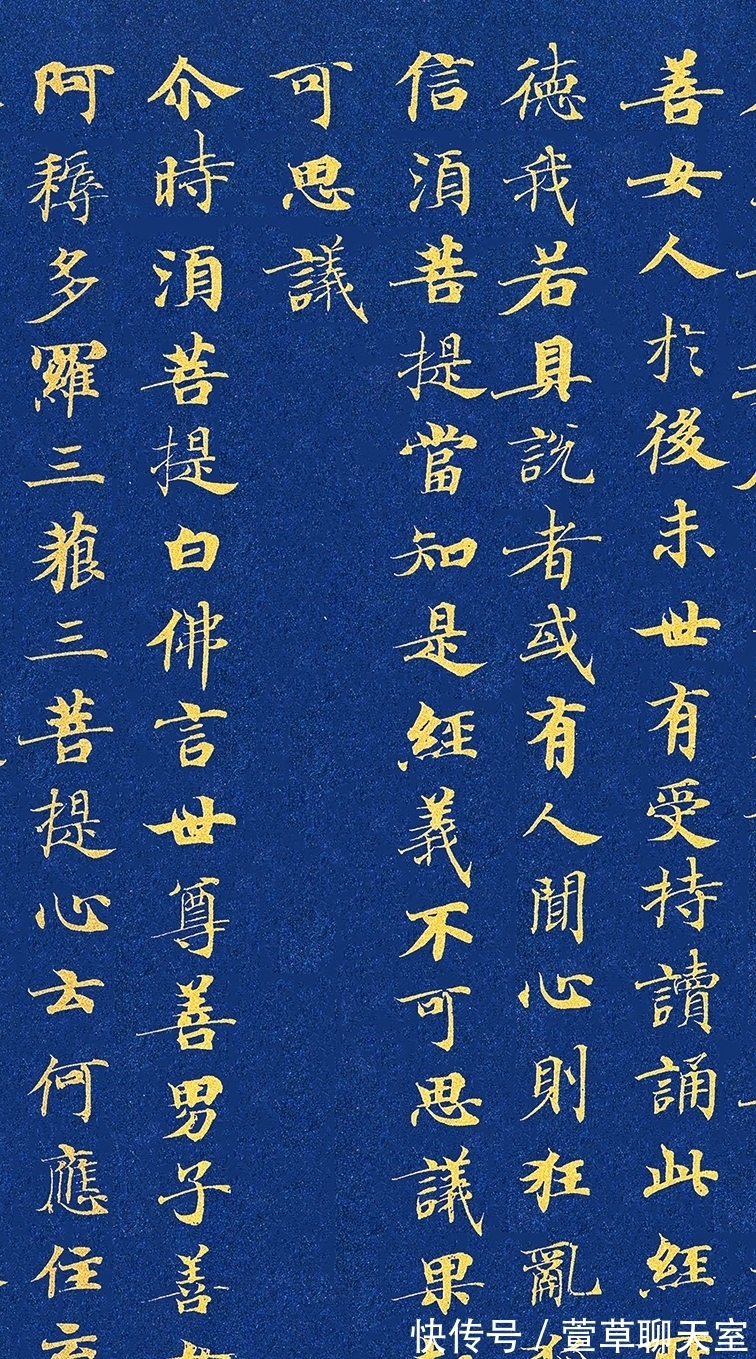 善女人於後末世有受持讀誦此經
德我若具說者或有人聞心則狂亂
信須菩提當知是經義不可思議果
可思議
尒時須菩提白佛言世尊善男子善
阿耨多羅三藐三菩提心云何應住
快传号/萱草聊天室